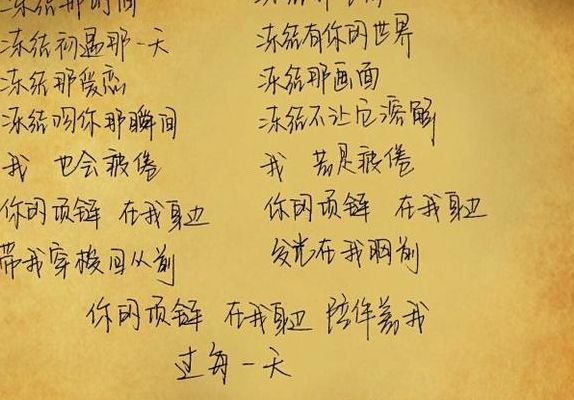 冻结那时间
冻结初遇那一天
冻结那爱恋
冻结吻你那瞬间
我 也会疲倦
你的项链 在我身边
带我穿梭回从前
冻结有你的世界
冻结那画面
冻结不让它溶解
我 若是疲倦
你的项链 在我身边
发光在我胸前
你的项链 在我身边 陪伴着我
过每一天